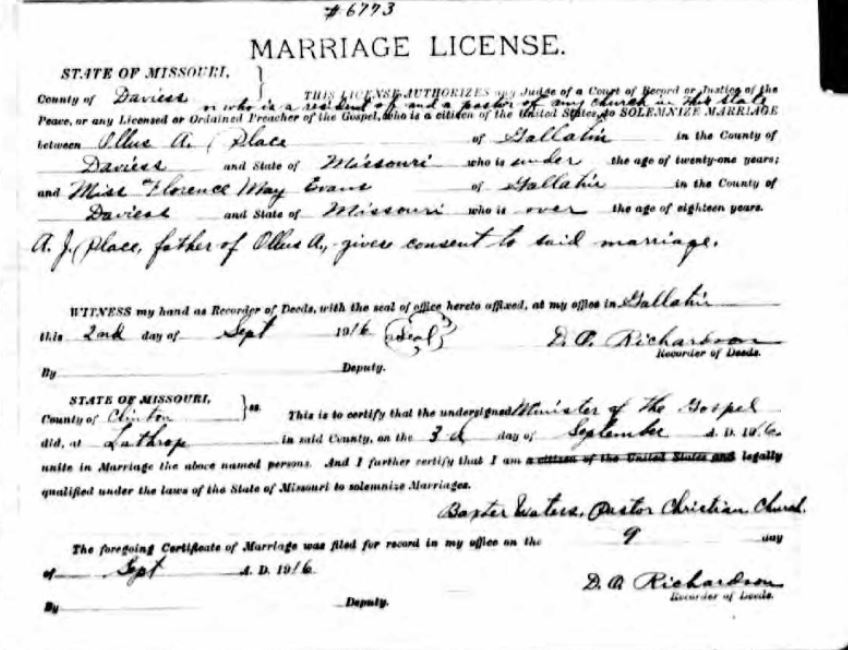 #6773
MARRIAGE LICENSE.
STATE OF MISSOURI,
County of Daviess } THIS LICENSE AUTHORIZES any Judge of a Court of Record or Justice of the
or who is a resident of and a pastor of any church in this state
Peace, or any Licensed or Ordained Preacher of the Gospel, who is a citizen of the United States, to SOLEMNIZE MARRIAGE
between Ollus A. Place of Gallatin in the County of
Daviess and State of Missouri who is under the age of twenty-one years;
and Miss Florence May Evans of Gallatin in the County of
Daviess and State of Missouri who is over the age of eighteen years.
A. J. Place, father of Ollus A., gives consent to said marriage.
WITNESS my hand as Recorder of Deeds, with the seal of office hereto affixed, at my office in Gallatin
this 2nd day of Sept 1916 (seal) D. A. Richardson
Recorder of Deeds.
By Deputy.
STATE OF MISSOURI,
County of Clinton } ss. This is to certify that the undersigned Minister of the Gospel
did, at Lathrop in said County, on the 3d day of September A. D. 1916.
unite in Marriage the above named persons. And I further certify that I am a citizen of the United States and legally
qualified under the laws of the State of Missouri to solemnize Marriages.
Baxter Waters, Pastor Christian Church.
The foregoing Certificate of Marriage was filed for record in my office on the 9 day
of Sept A. D. 1916. D. A. Richardson
Recorder of Deeds.
By Deputy.